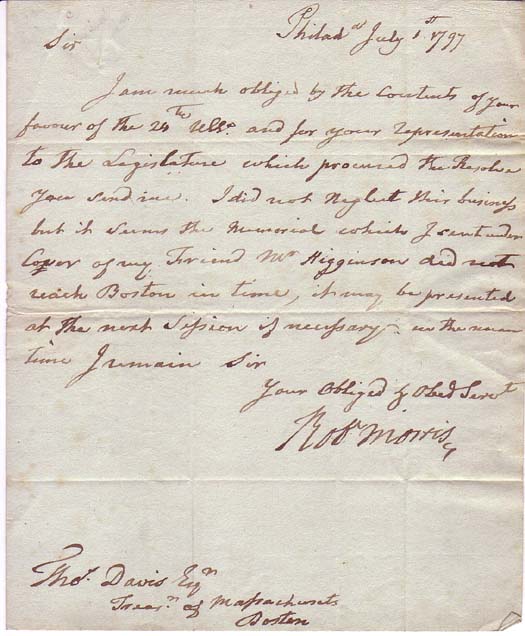 Philad.a July 1st 1797
Sir
I am much obliged by the Contents of your
favour of the 24th Ulto. and for your representation
to the Legislature which procured the Resolve
you send me. I did not neglect this business
but it seems the Memorial which I sent under
Cover of my Friend Mr Higginson did not
reach Boston in time, it may be presented
at the next Session if necessary – in the mean
time I remain Sir
Your Obliged & Obed Servt
Robt Morris
Thos. Davis Esqr
Treasr. of Massachusets
Boston